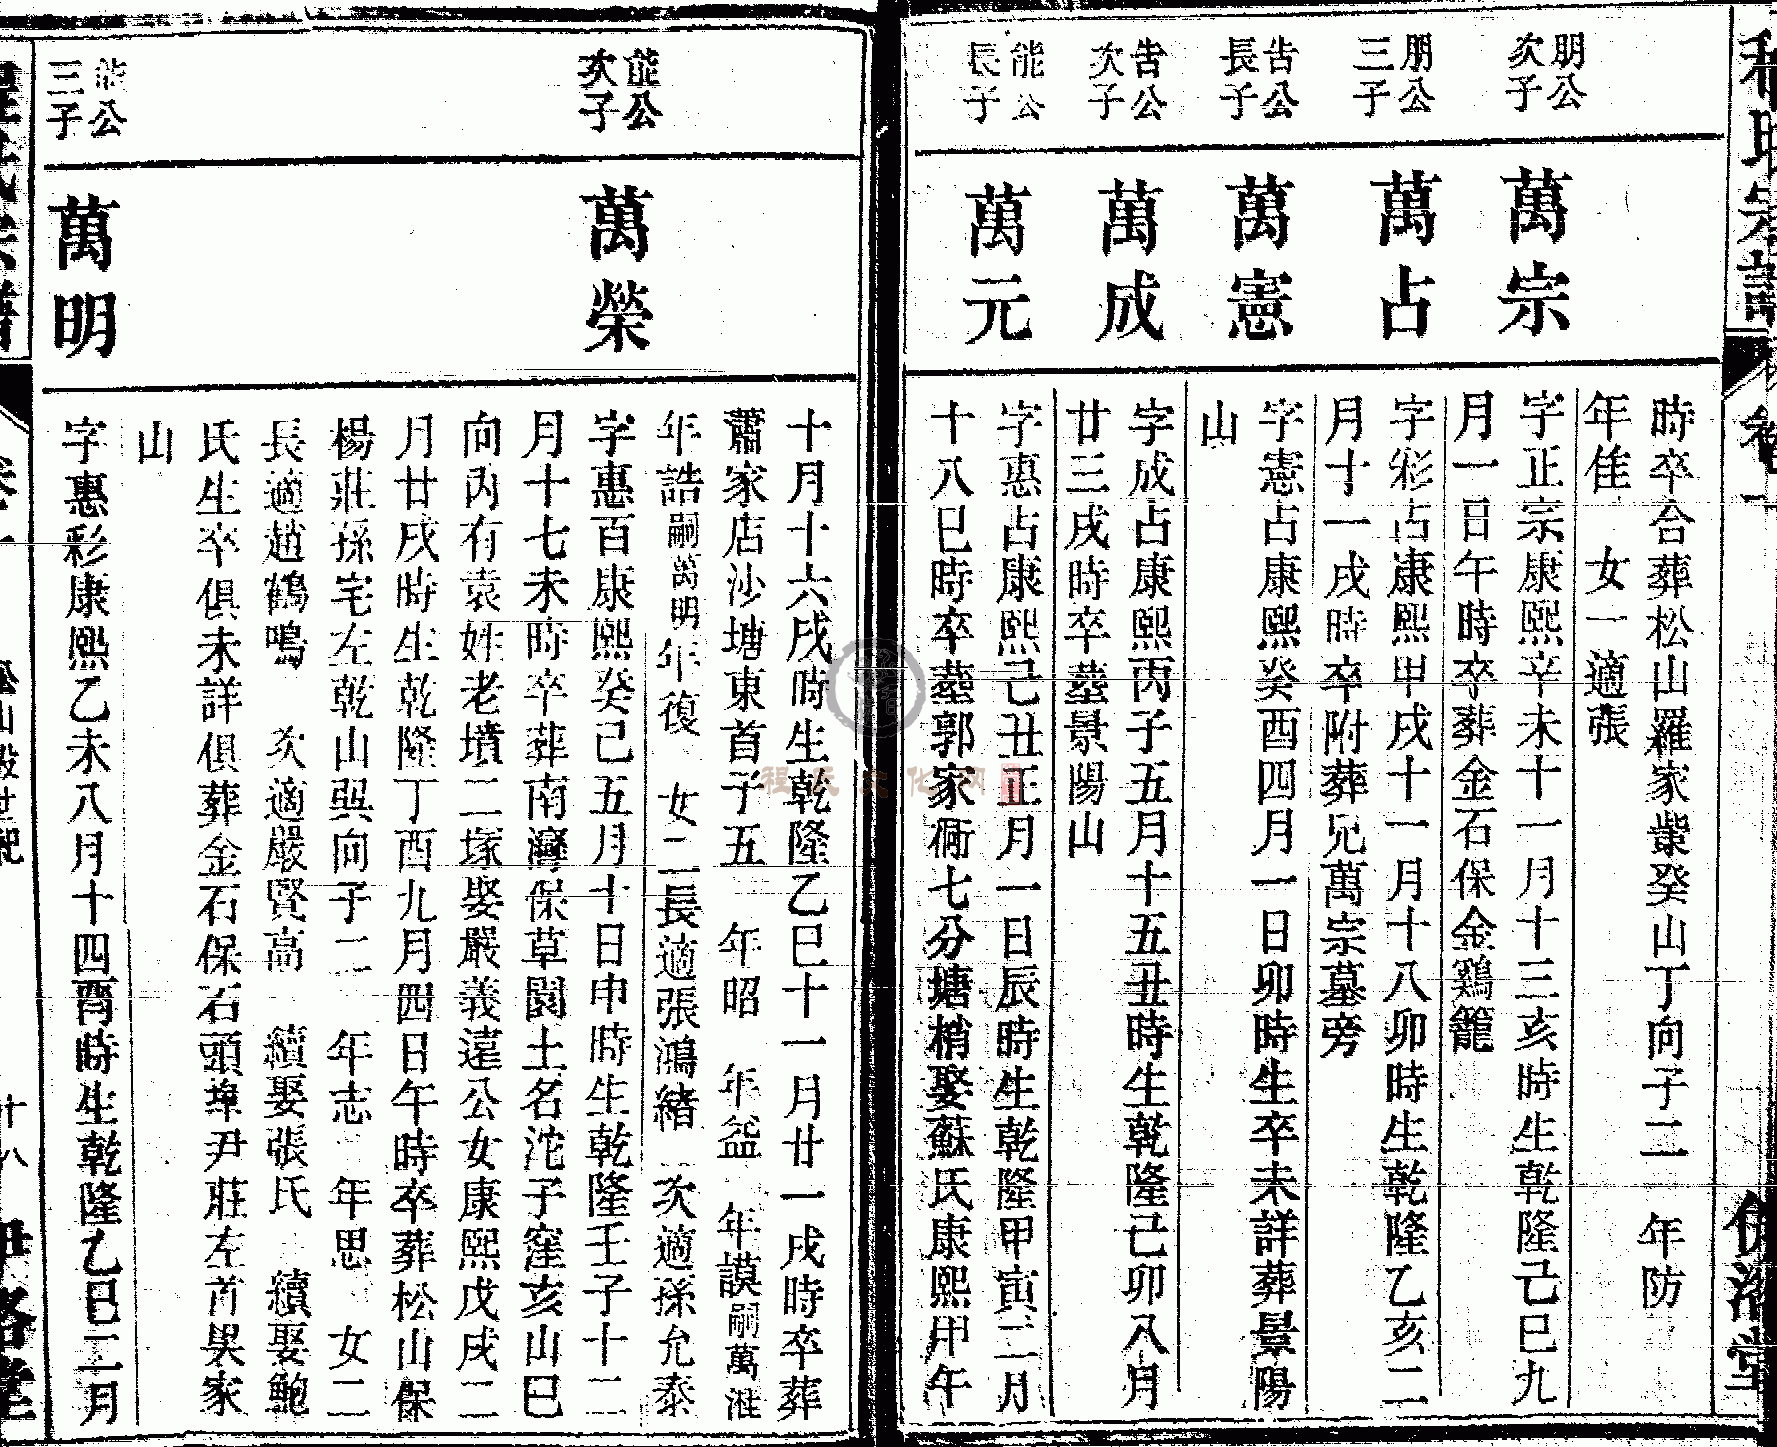 程氏宗譜
卷一
伊洛堂
時卒合葬松山羅家䊹癸山丁向子二　年防
年佳　女一適張
朋公次子
萬宗
字正宗康熙辛未十一月十三亥時生乾隆己巳九
月一日午時卒葬金石保金鷄籠
朋公三子
萬占
字彩占康熙甲戌十一月十八卯時生乾隆乙亥二
月十一戌時卒附葬兄萬宗墓旁
吿公長子
萬憲
字憲占康熙癸酉四月一日卯時生卒未詳葬景陽
山
吿公次子
萬成
字成占康熙丙子五月十五丑時生乾隆己卯八月
廿三戌時卒墓景陽山
能公長子
萬元
字惠占康熙己丑正月一日辰時生乾隆甲寅二月
十八巳時卒墓郭家衕七分塘梢娶蘇氏康熙甲午
十月十六戌時生乾隆乙巳十一月廿一戌時卒葬
蕭家店沙塘東首子五　年昭　年益　年謨嗣萬淮
年誥嗣萬明年復　女二長適張鴻緒　次適孫允泰
能公次子
萬榮
字惠百康熙癸巳五月十日申時生乾隆壬子十二
月十七未時卒葬南灣保草閿土名沱子窪亥山巳
向內有袁姓老墳二塚娶嚴義達公女康熙戊戌二
月廿戌時生乾隆丁酉九月四日午時卒葬松山保
楊莊孫宅左乾山巽向子二　年志　年思　女二
長適趙鶴鳴　次適嚴賢高　續娶張氏　續娶鮑
氏生卒俱未詳俱葬金石保石頭埠尹莊左首吳家
山
能公三子
萬明
字惠彩康熙乙未八月十四酉時生乾隆乙巳二月
程氏宗譜
卷一
松山派世紀
十八
伊洛堂
程氏文化网